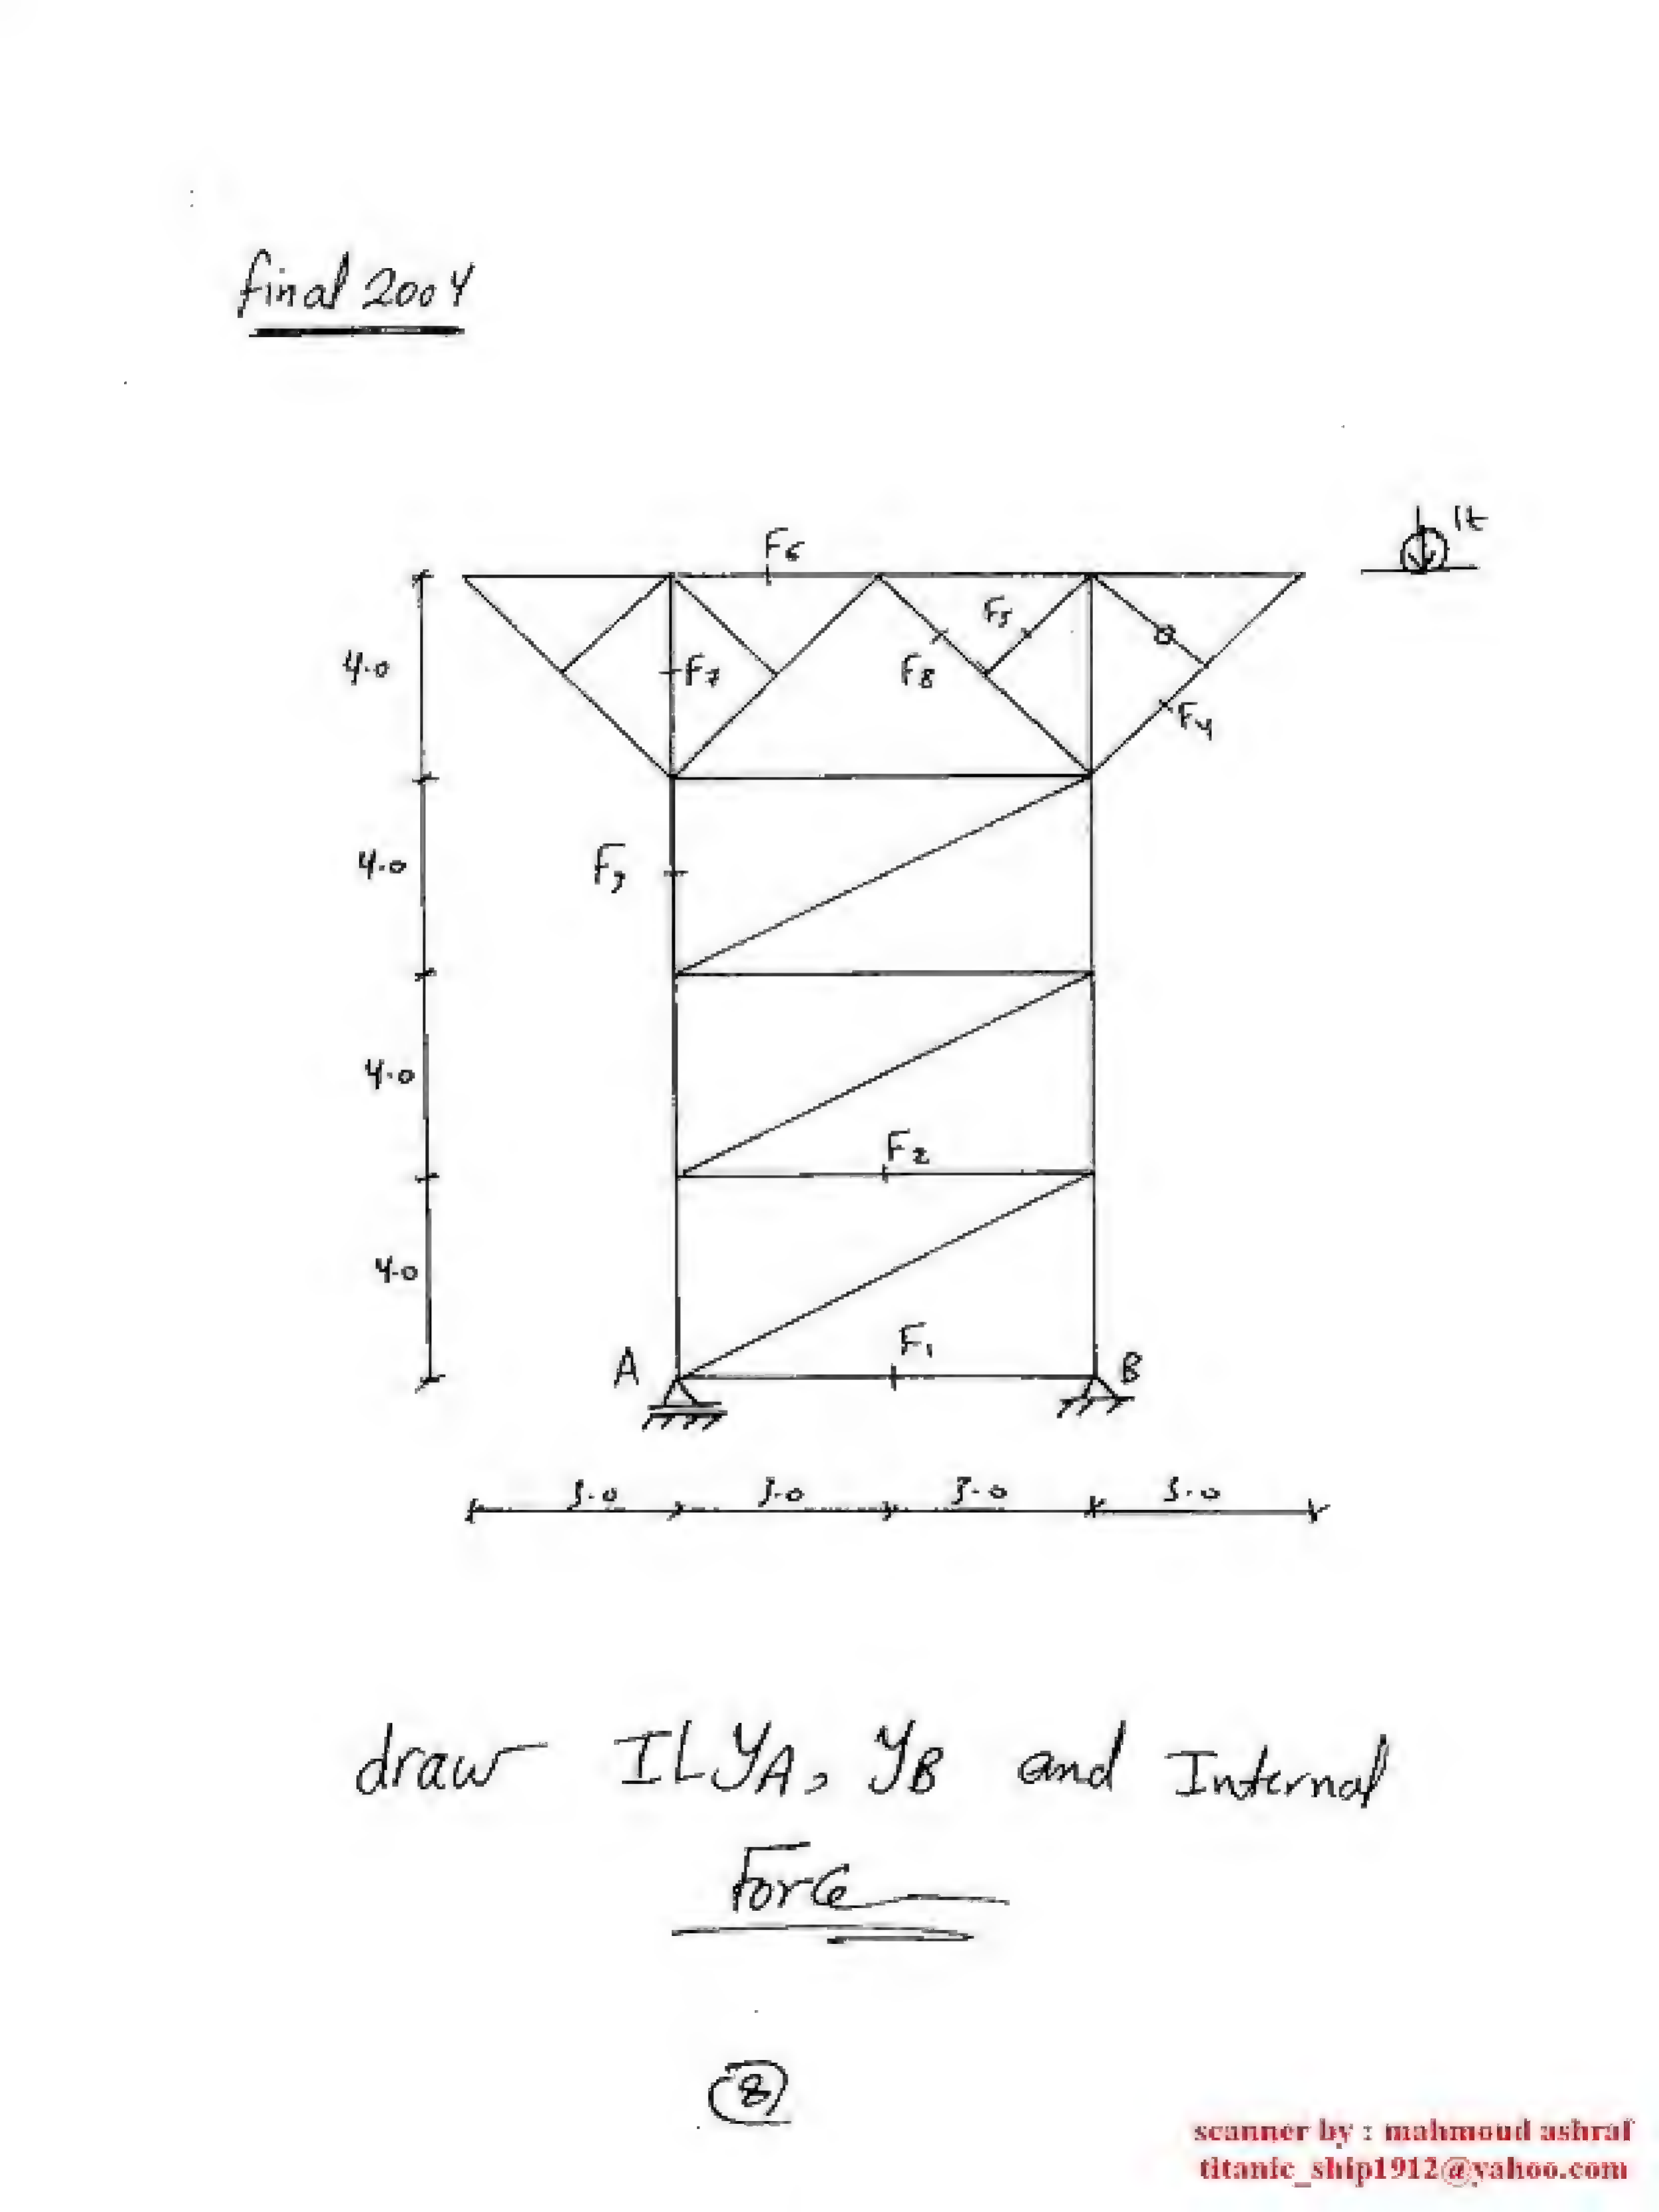 final 2004
1t
F6
F5
F8
F7
F4
4.0
F3
4.0
4.0
F2
4.0
F1
A
B
3.0 3.0 3.0 3.0
draw IL YA, YB and Internal
Force
8
scanner by : mahmoud ashraf
titanic_ship1912@yahoo.com